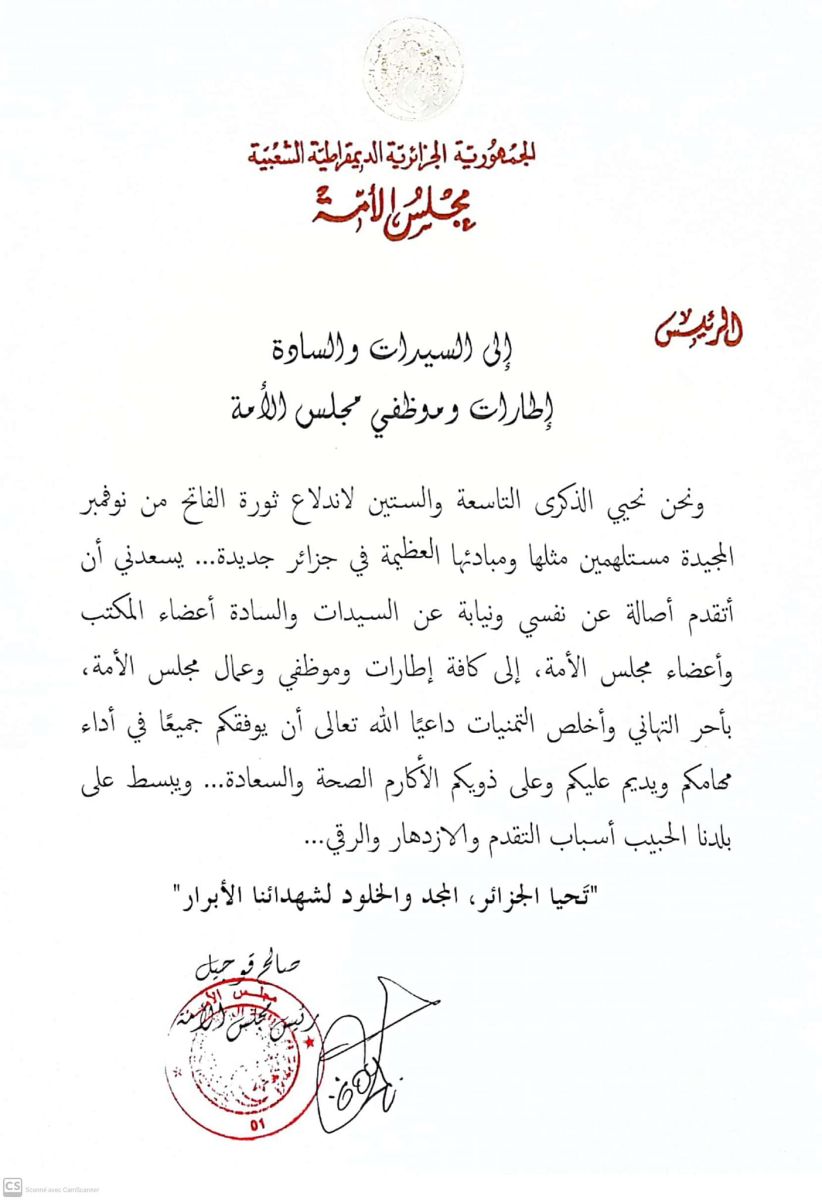 الجمهورية الجزائرية الديمقراطية الشعبية
مجلس الأمة
الرئيس
إلى السيدات والسادة
إطارات وموظفي مجلس الأمة
ونحن نحيي الذكرى التاسعة والستين لاندلاع ثورة الفاتح من نوفمبر
المجيدة مستلهمين مثلها ومبادئها العظيمة في جزائر جديدة... يسعدني أن
أتقدم أصالة عن نفسي ونيابة عن السيدات والسادة أعضاء المكتب
وأعضاء مجلس الأمة، إلى كافة إطارات وموظفي وعمال مجلس الأمة،
بأحر التهاني وأخلص التمنيات داعيًا الله تعالى أن يوفقكم جميعًا في أداء
مهامكم ويديم عليكم وعلى ذويكم الأكارم الصحة والسعادة... ويبسط على
بلدنا الحبيب أسباب التقدم والازدهار والرقي...
"تَحيا الجزائر، المجد والخلود لشهدائنا الأبرار"
صالح قوجيل
رئيس مجلس الأمة
مجلس الأمة
01
CS
Scanné avec CamScanner